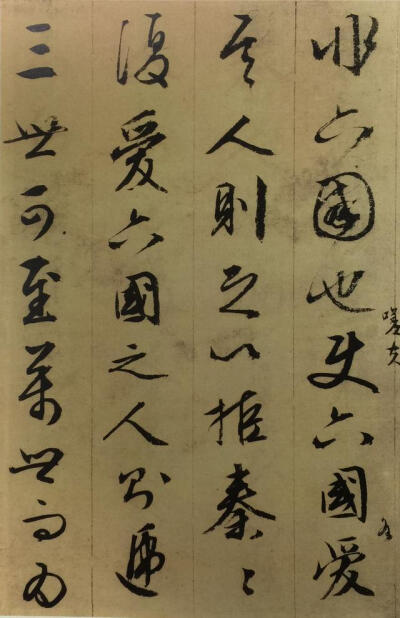 非六國也使六國愛
嗟夫
各
其人則足以拒秦〻
復愛六國之人則遞
三世可至萬世而為